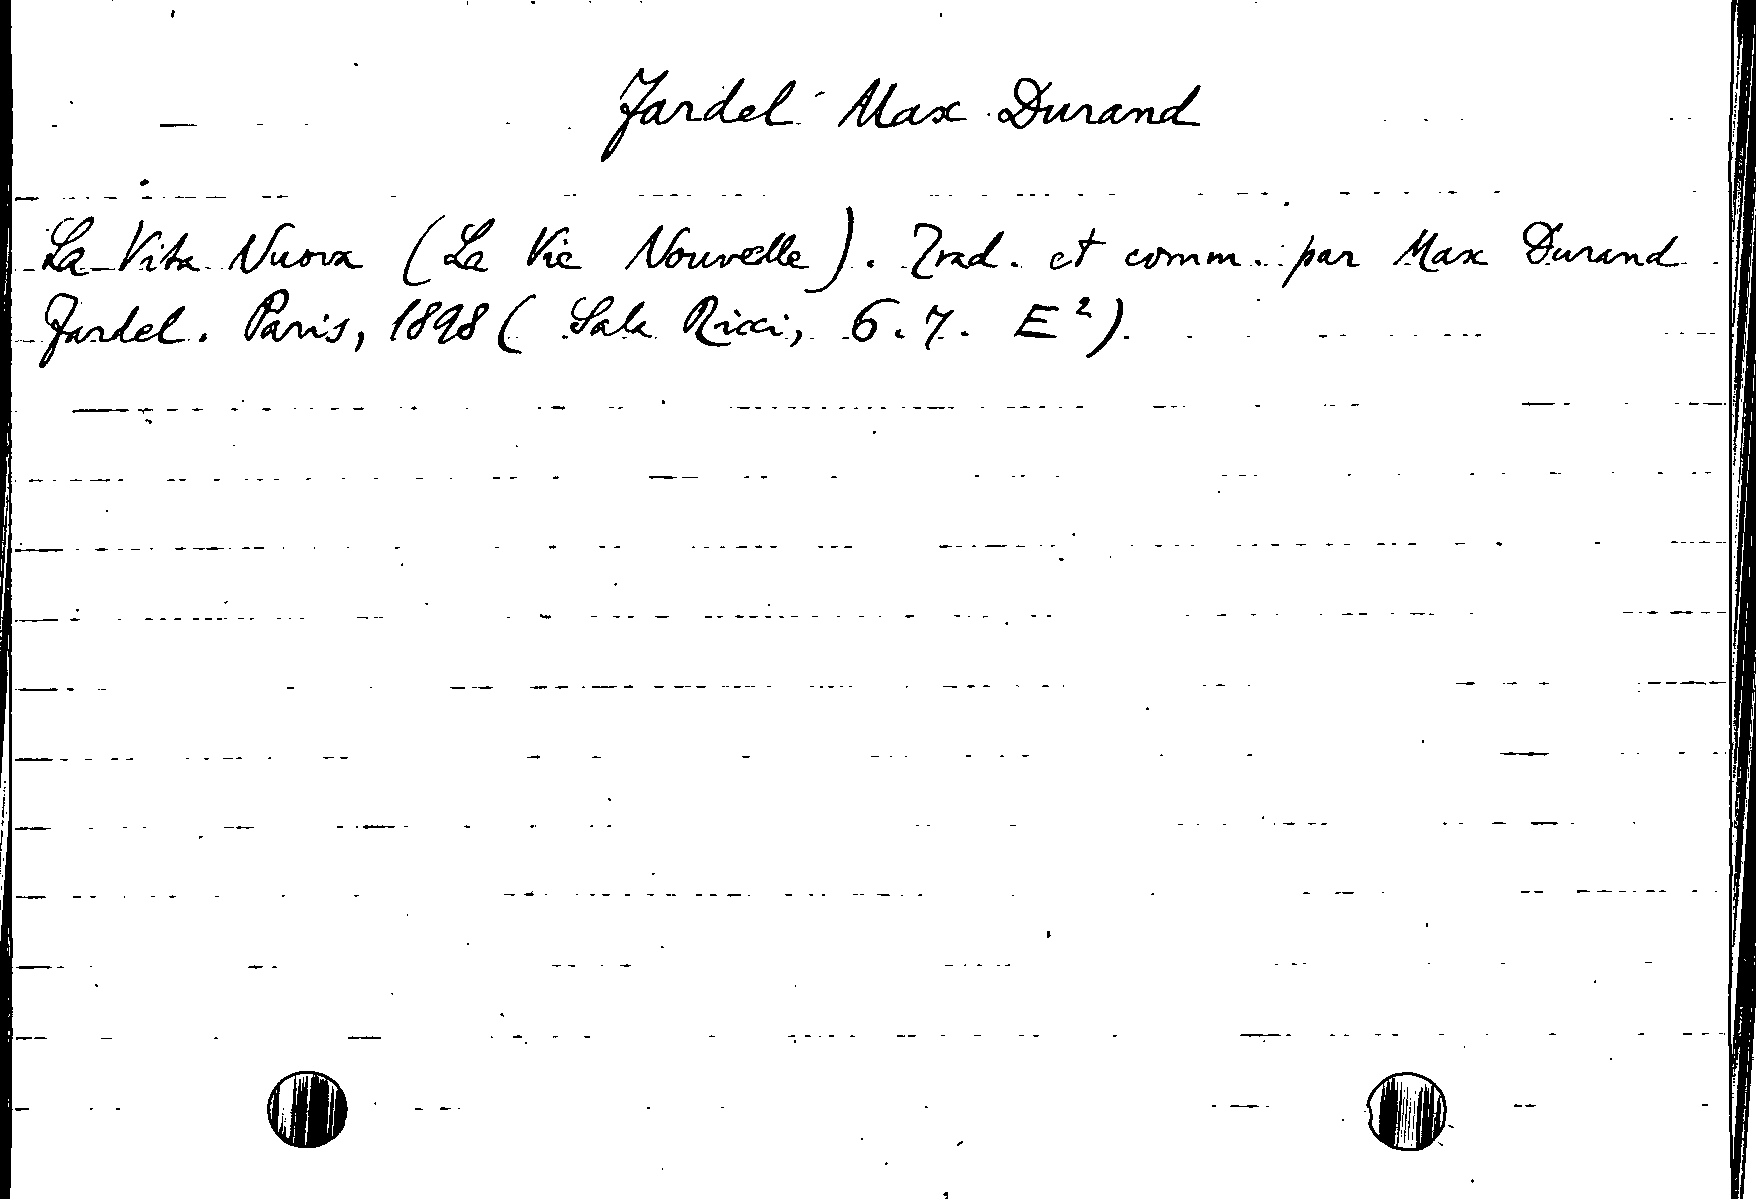 Fardel Max Durand
La Vita Nuova (La Vie Nouvelle). Trad. et comm. par Max Durand
Fardel. Paris, 1898 (Sala Ricci, 6.7. E²).